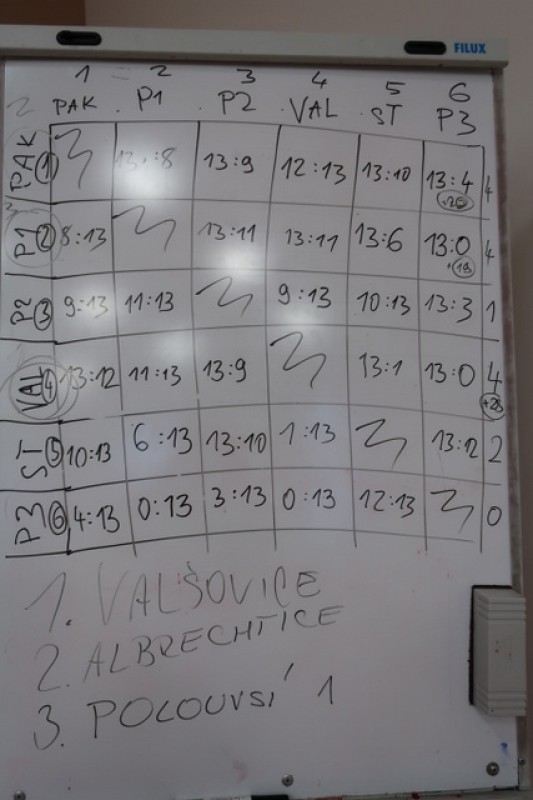 FILUX
1 2 3 4 5 6
PAK P1 P2 VAL ST P3
PAK 1 13:8 13:9 12:13 13:10 13:4 4
P1 2 8:13 13:11 13:11 13:6 13:0 4
+19
P2 3 9:13 11:13 9:13 10:13 13:3 1
VAL 4 13:12 11:13 13:9 13:1 13:0 4
+28
ST 5 10:13 6:13 13:10 1:13 13:12 2
P3 6 4:13 0:13 3:13 0:13 12:13 0
1. VALŠOVICE
2. ALBRECHTICE
3. POLOUVSÍ 1